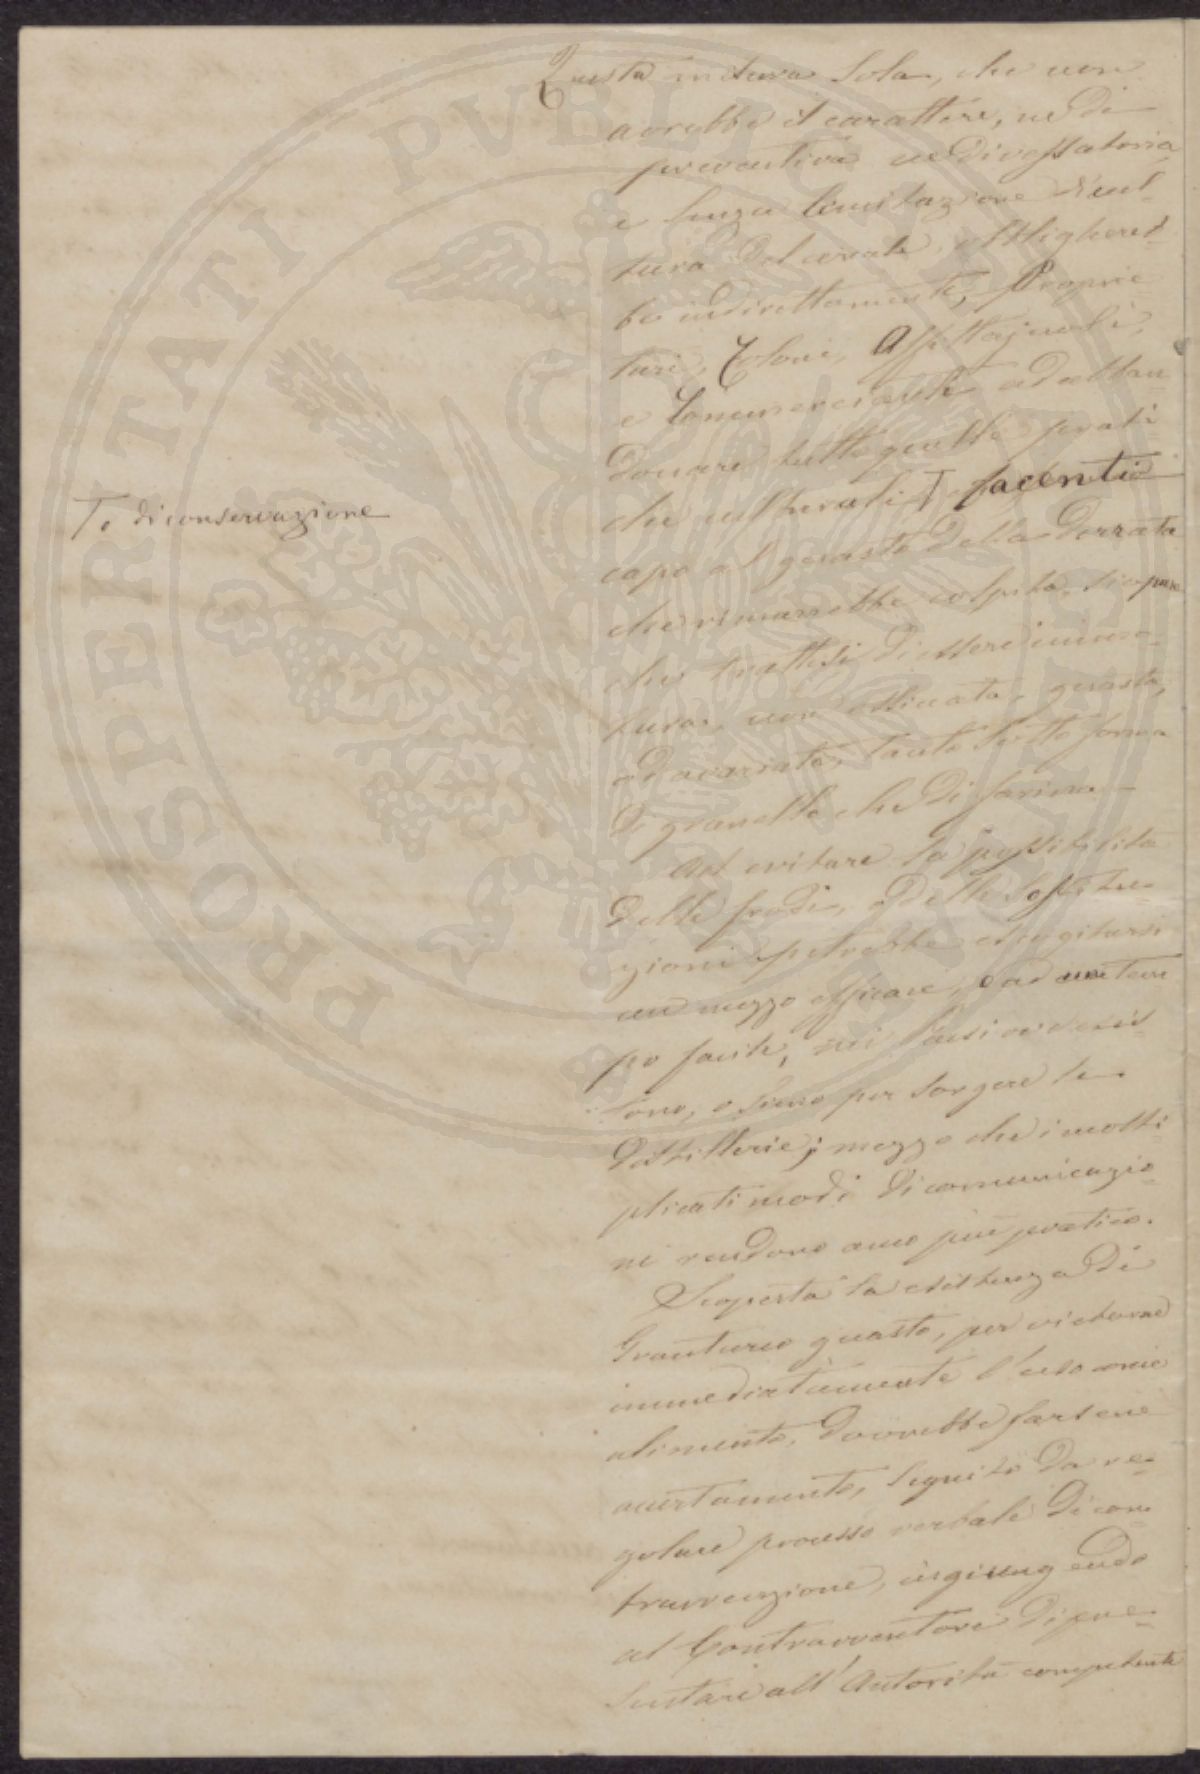 Questa misura sola, che non
avrebbe il carattere, nè di
preventiva nè di vessatoria,
e senza limitazione di cul-
tura del cereale obblighereb-
be indirettamente, Proprie
tari, Coloni, Affittajuoli,
e Commercianti ad abban-
donare tutte quelle prati-
che culturali T facenti
capo al guasto della derrata
che rimarrebbe colpita, sia pure
che trattisi di essere imma-
tura, non essiccata, guasta,
od avariata, tanto sotto forma
di granella che di farina.
Ad evitare la possibilità
delle frodi, e delle sostitu-
zioni potrebbe escogitarsi
un mezzo efficace, e ad un tem
po facile, nei Paesi ove esis-
tono, o sieno per sorgere le
distillerie; mezzo che i molti-
plicati modi di comunicazio-
ni rendono anco più pratico.
Scoperta la esistenza di
Granturco guasto, per vietarne
immediatamente l'uso come
alimento, dovrebbe farsene
accertamento, seguito da re-
golare processo verbale di con-
travvenzione, ingiungendo
al Contravventore di pre-
sentare all'Autorità competente
T. di conservazione
PROSPERITATI PVBLICAE